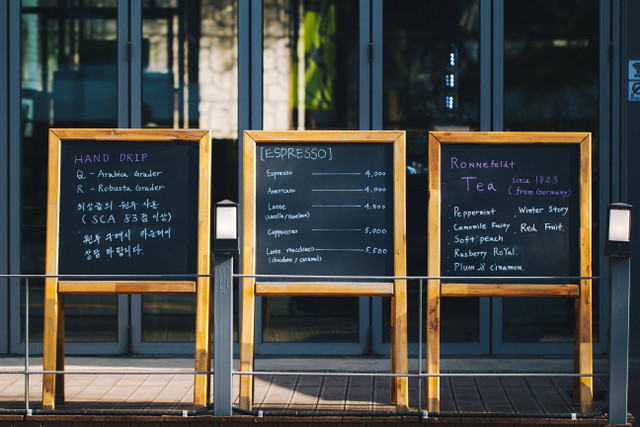 HAND DRIP
Q - Arabica Grader
R - Robusta Grader
최상급의 원두 사용
(SCA 83점 이상)
원두 구매시
[ESPRESSO]
Espresso 4,000
Americano 4,000
Latte 4,500
(Vanilla/Hazelnut)
Cappuccino 5,000
Latte macchiato 5,500
(chocolate / caramel)
Ronnefeldt
Tea since 1823
(from Germany)
Peppermint
Camomile Fruity
Soft peach
Rasberry Royal
Plum & Cinnamon.
Winter Story
Red Fruit.